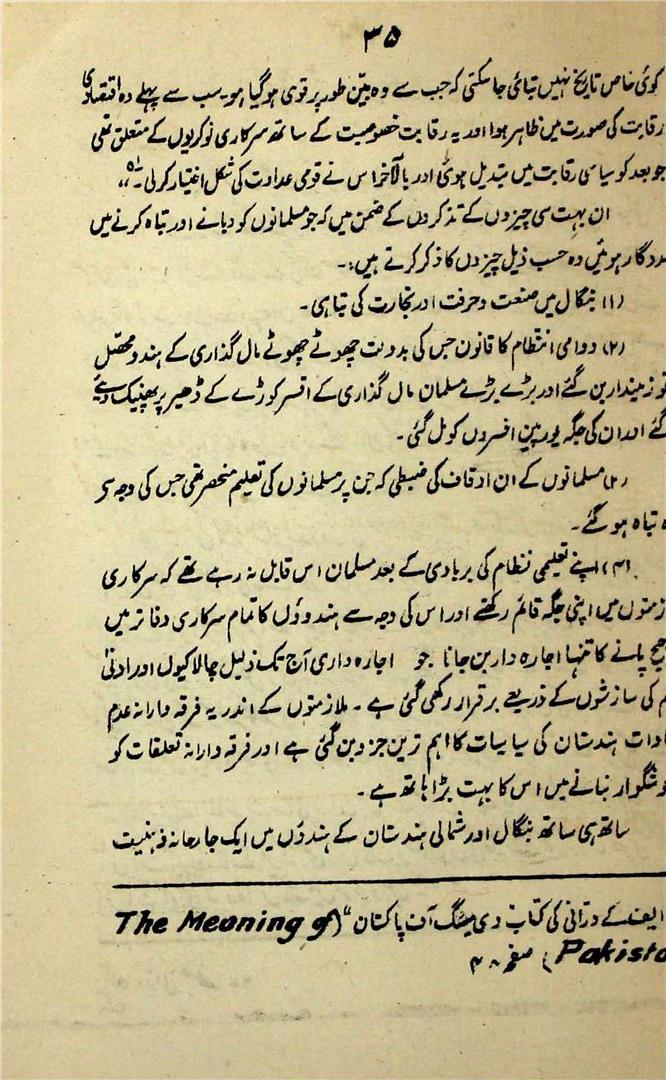 ۳۵
کوئی خاص تاریخ نہیں بتائی جاسکتی کہ جب سے وہ بیّن طور پر قوی ہوگیا ہو۔ سب سے پہلے وہ اقتصادی
رقابت کی صورت میں ظاہر ہوا اور یہ رقابت خصوصیت کے ساتھ سرکاری نوکریوں کے متعلق تھی
جو بعد کو سیاسی رقابت میں تبدیل ہوئی اور بالآخر اس نے قومی عداوت کی شکل اختیار کرلی۔"
ان بہت سی چیزوں کے تذکروں کے ضمن میں کہ جو مسلمانوں کو دبانے اور تباہ کرنے میں
مددگار ہوئیں وہ حسب ذیل چیزوں کا ذکر کرتے ہیں:۔
(۱) بنگال میں صنعت و حرفت اور تجارت کی تباہی۔
(۲) دوامی انتظام کا قانون جس کی بدولت چھوٹے چھوٹے مال گذاری کے ہندو محصّل
تو زمیندار بن گئے اور بڑے بڑے مسلمان مال گذاری کے افسر کوڑے کے ڈھیر پر پھینک دیئے
گئے اور ان کی جگہ یورپین افسروں کو مل گئی۔
مسلمانوں کے ان اوقاف کی ضبطی کہ جن پر مسلمانوں کی تعلیم منحصر تھی جس کی وجہ سے
تباہ ہوگئے۔
(۴) اپنے تعلیمی نظام کی بربادی کے بعد مسلمان اس قابل نہ رہے تھے کہ سرکاری
زمتوں میں اپنی جگہ قائم رکھتے اور اس کی وجہ سے ہندوؤں کا تمام سرکاری دفاتر میں
پانے کا تنہا اجارہ دار بن جانا جو اجارہ داری آج تک ذلیل چالاکیوں اور ادنیٰ
کی سازشوں کے ذریعے برقرار رکھی گئی ہے۔ ملازمتوں کے اندر یہ فرقہ دارانہ عدم
ادات ہندستان کی سیاسیات کا اہم ترین جزو بن گئی ہے اور فرقہ دارانہ تعلقات کو
وشگوار بنانے میں اس کا بہت بڑا ہاتھ ہے۔
ساتھ ہی ساتھ بنگال اور شمالی ہندستان کے ہندؤں میں ایک جارحانہ ذہنیت
ایف کے درانی کی کتاب دی میننگ آف پاکستان" (The Meaning of
Pakista) صفحہ ۴۰